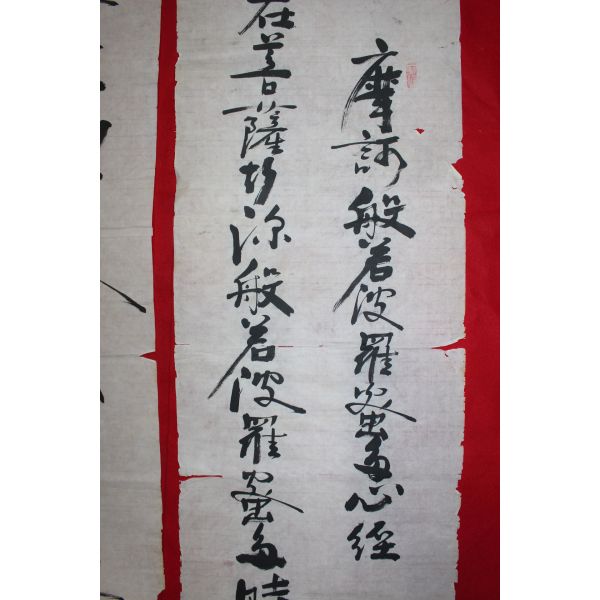 摩訶般若波羅蜜多心経
在菩薩行深般若波羅蜜多時